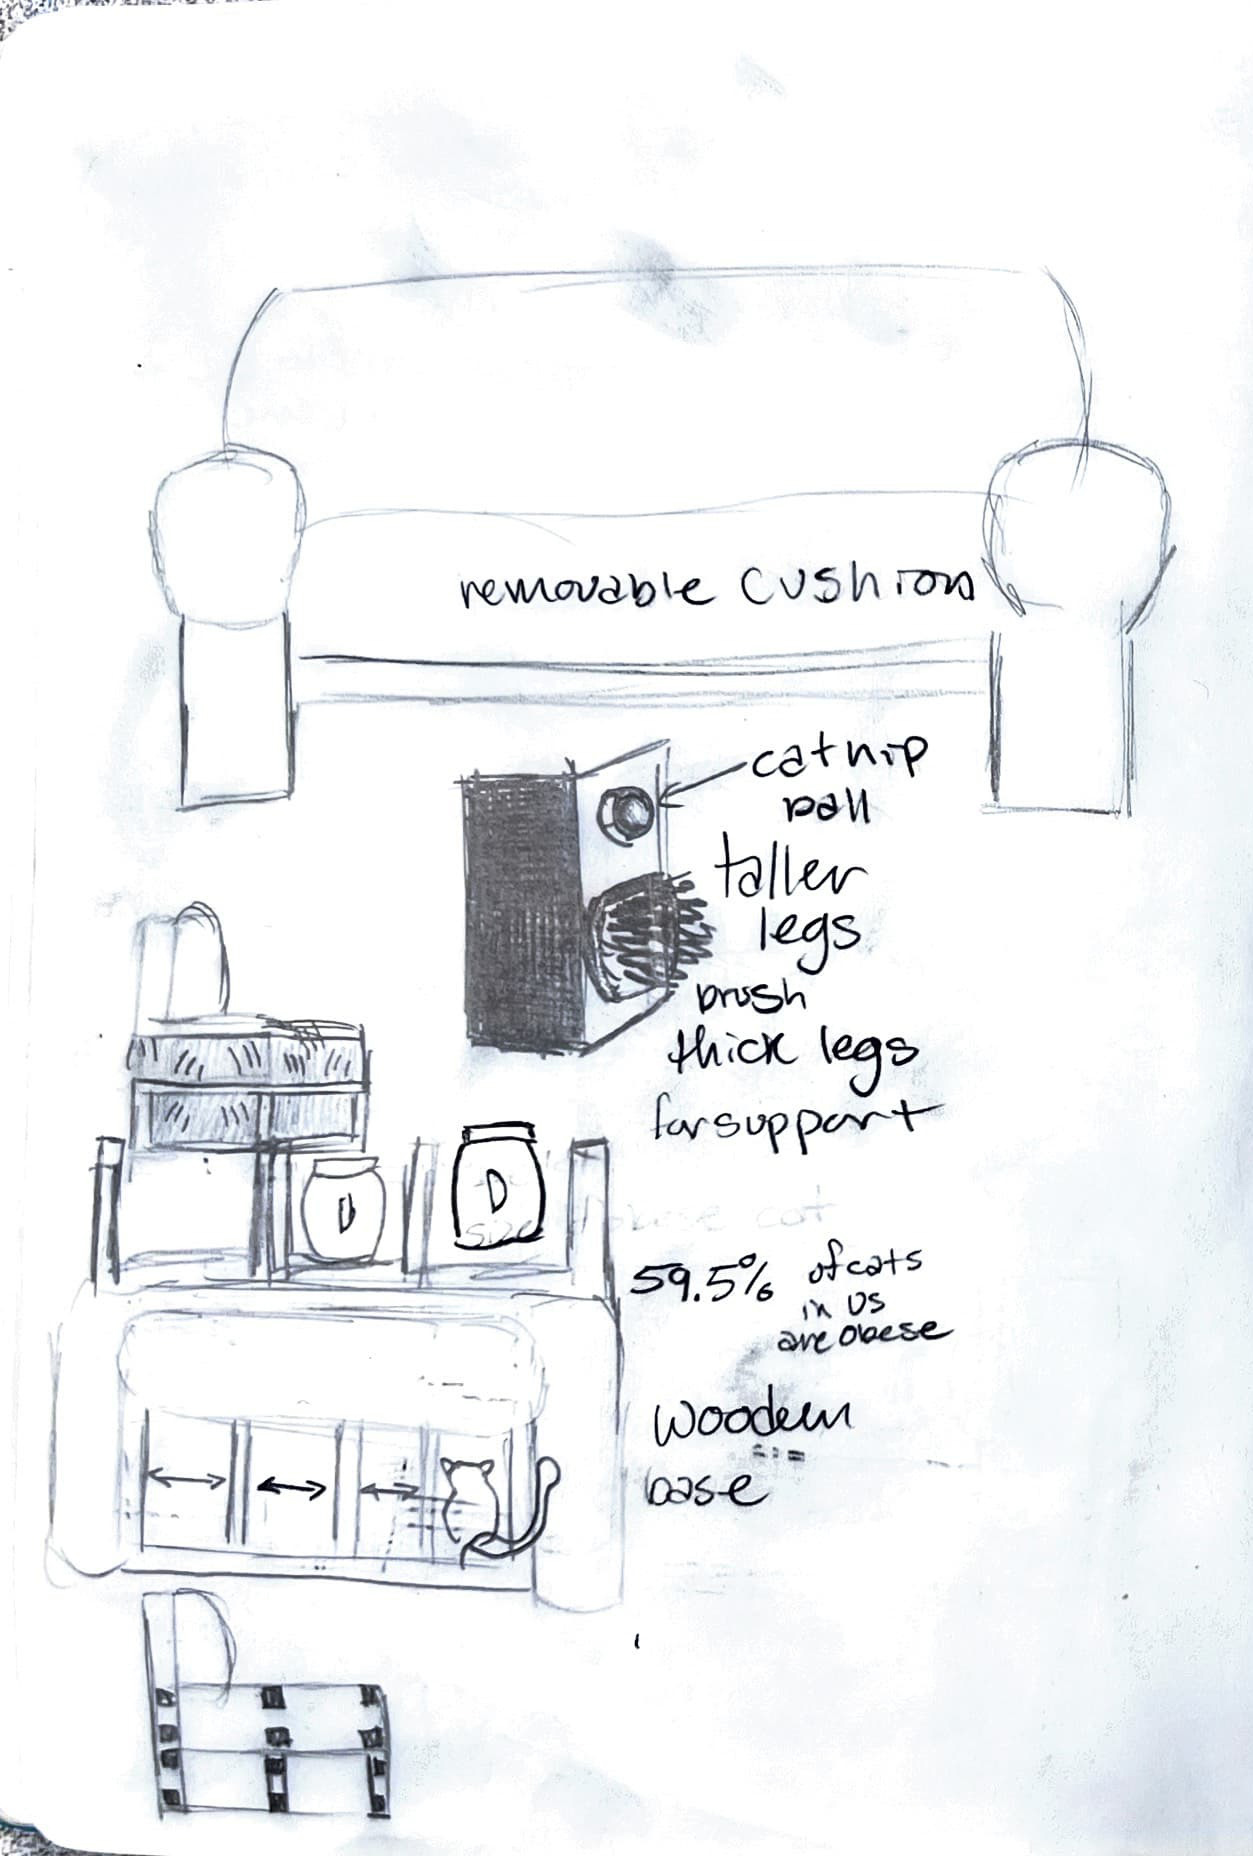 removable cushion
catnip
ball
taller
legs
brush
thick legs
for support
D
D
size obese cat
59.5% of cats
in US
are obese
Wooden
base